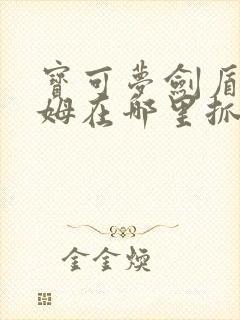 寶可夢劍盾
姆在哪里抓
金金煥